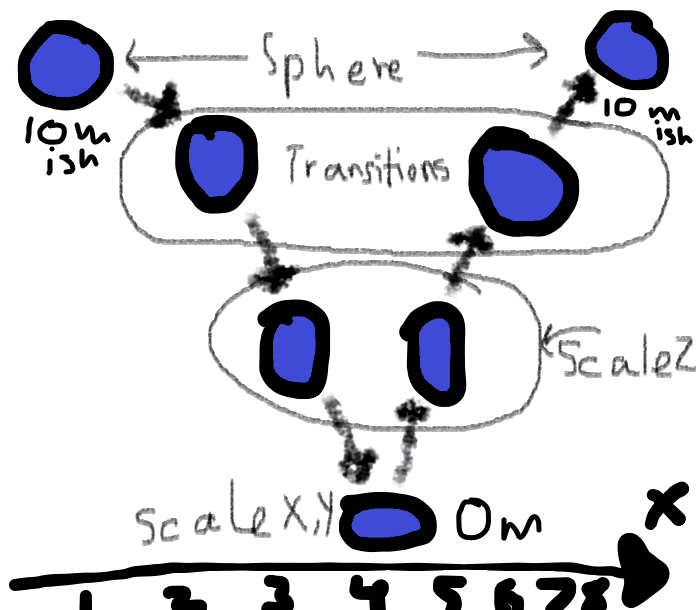 Sphere
10m
ish
10m
ish
Transitions
Scale Z
Scale X,Y
0m
X
1 2 3 4 5 6 7 8